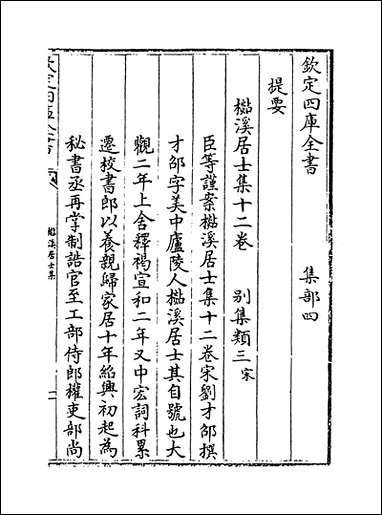 欽定四庫全書 集部四
提要
檆溪居士集十二卷 别集類三 宋
臣等謹案檆溪居士集十二卷宋劉才邵撰
才邵字美中廬陵人檆溪居士其自號也大
觀二年上舍釋褐宣和二年又中宏詞科累
遷校書郎以養親歸家居十年紹興初起為
秘書丞再掌制誥官至工部侍郎權吏部尚
欽定四庫全書
檆溪居士集
一